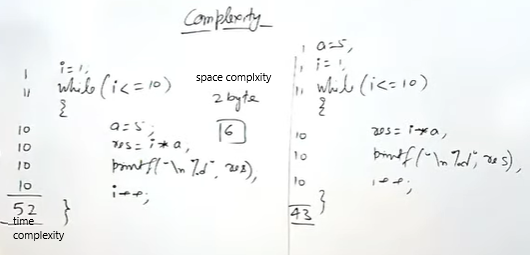 Complexity
1 i=1;
11 while(i<=10)
{
10 a=5;
10 res=i*a,
10 printf("\n %d", res),
10 i++;
52 }
time
complexity
space complxity
2 byte
6
1 a=5,
1 i=1,
11 while(i<=10)
{
10 res=i*a,
10 printf("\n %d", res),
10 i++;
}
43